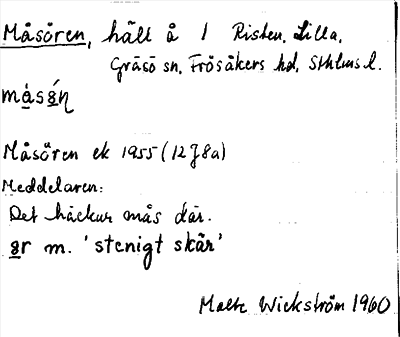 Måsören, häll å 1 Risten, Lilla,
Gräsö sn, Frösåkers hd, Sthlms l.
Måsören ek 1955 (12 J 8a)
Meddelaren:
Det häckar mås där.
m. 'stenigt skär'
Malte Wickström 1960